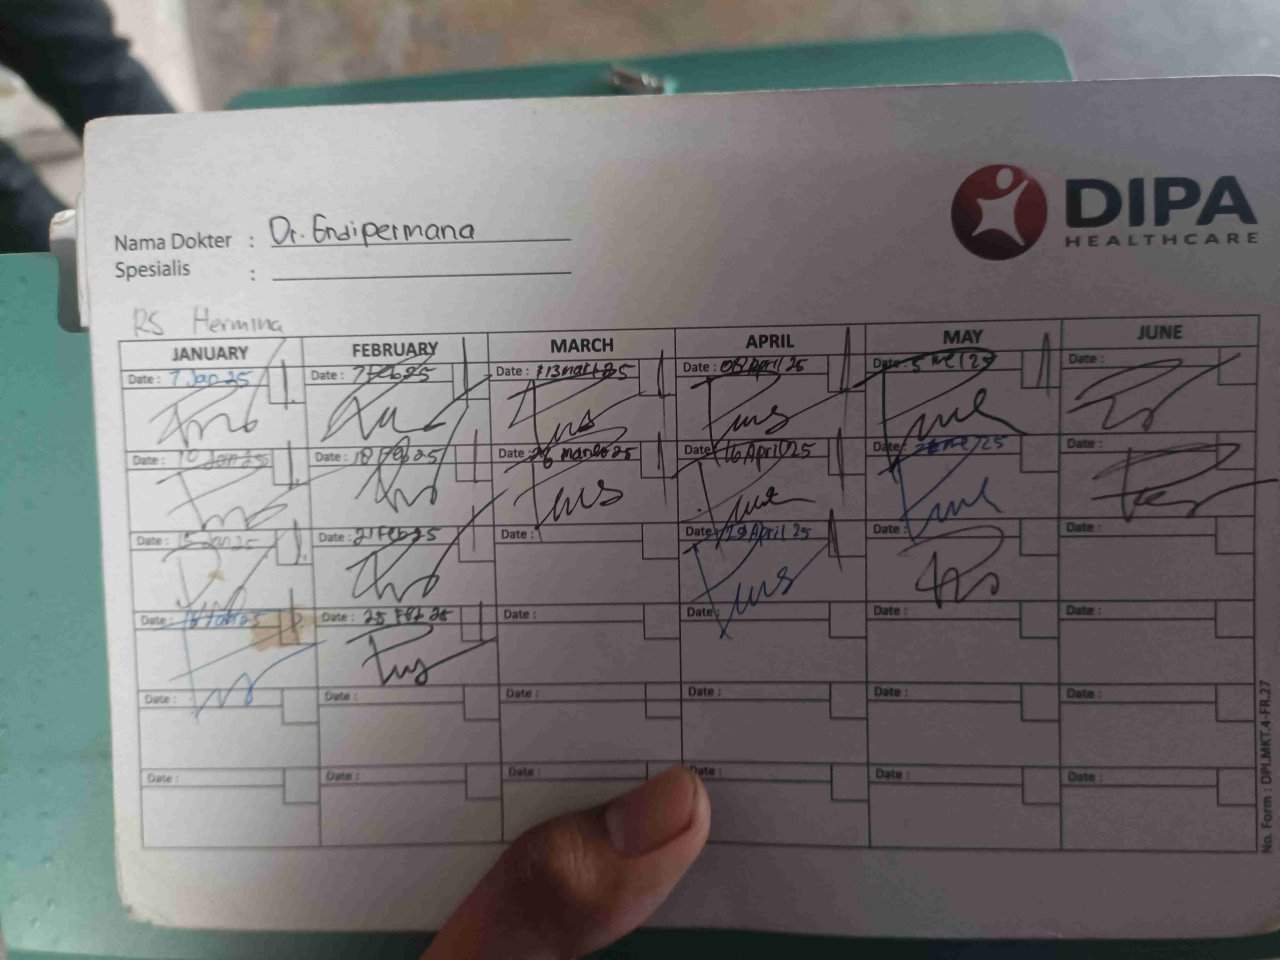 DIPA
HEALTHCARE
Nama Dokter : Dr. Endipermana
Spesialis :
RS Hermina
JANUARY FEBRUARY MARCH APRIL MAY JUNE
Date : 7 Jan 25 Date : 7 Feb 25 Date : Date : 08 April 25 Date : 5 Mei 25 Date :
Date : 10 Jan 25 Date : 18 Feb 25 Date : Date : 16 April 25 Date : Date :
Date : Date : 21 Feb 25 Date : Date : 29 April 25 Date :
Date : Date : 25 Feb 25 Date : Date : Date : Date :
Date : Date : Date : Date : Date : Date :
Date : Date : Date : Date : Date : Date :
No. Form : DPI.MKT.4-FR.27